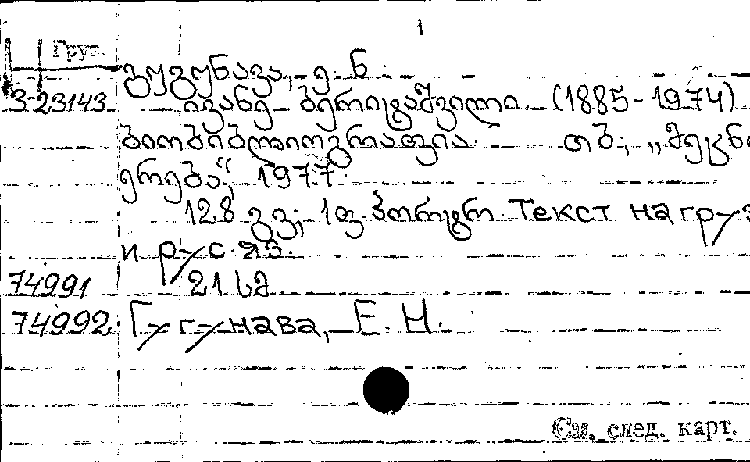 1
Груз.
გუგუნავა, ე. ნ.
3-23143 ივანე ბერიტაშვილი (1885-1974)
ბიობიბლიოგრაფია. თბ., „მეცნი
ერება“, 1977.
128 გვ., 1 ფ. პორტრ. Текст на груз
и рус. яз.
74991 21 სმ
74992 Гугунава, Е. Н.
См. след. карт.